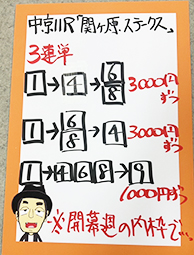 中京11R「関ヶ原ステークス」
3連単
1→4→6/8 3000円ずつ
1→6/8→4 3000円ずつ
1→4 6 8→9
1000円ずつ
※開幕週の内枠で…